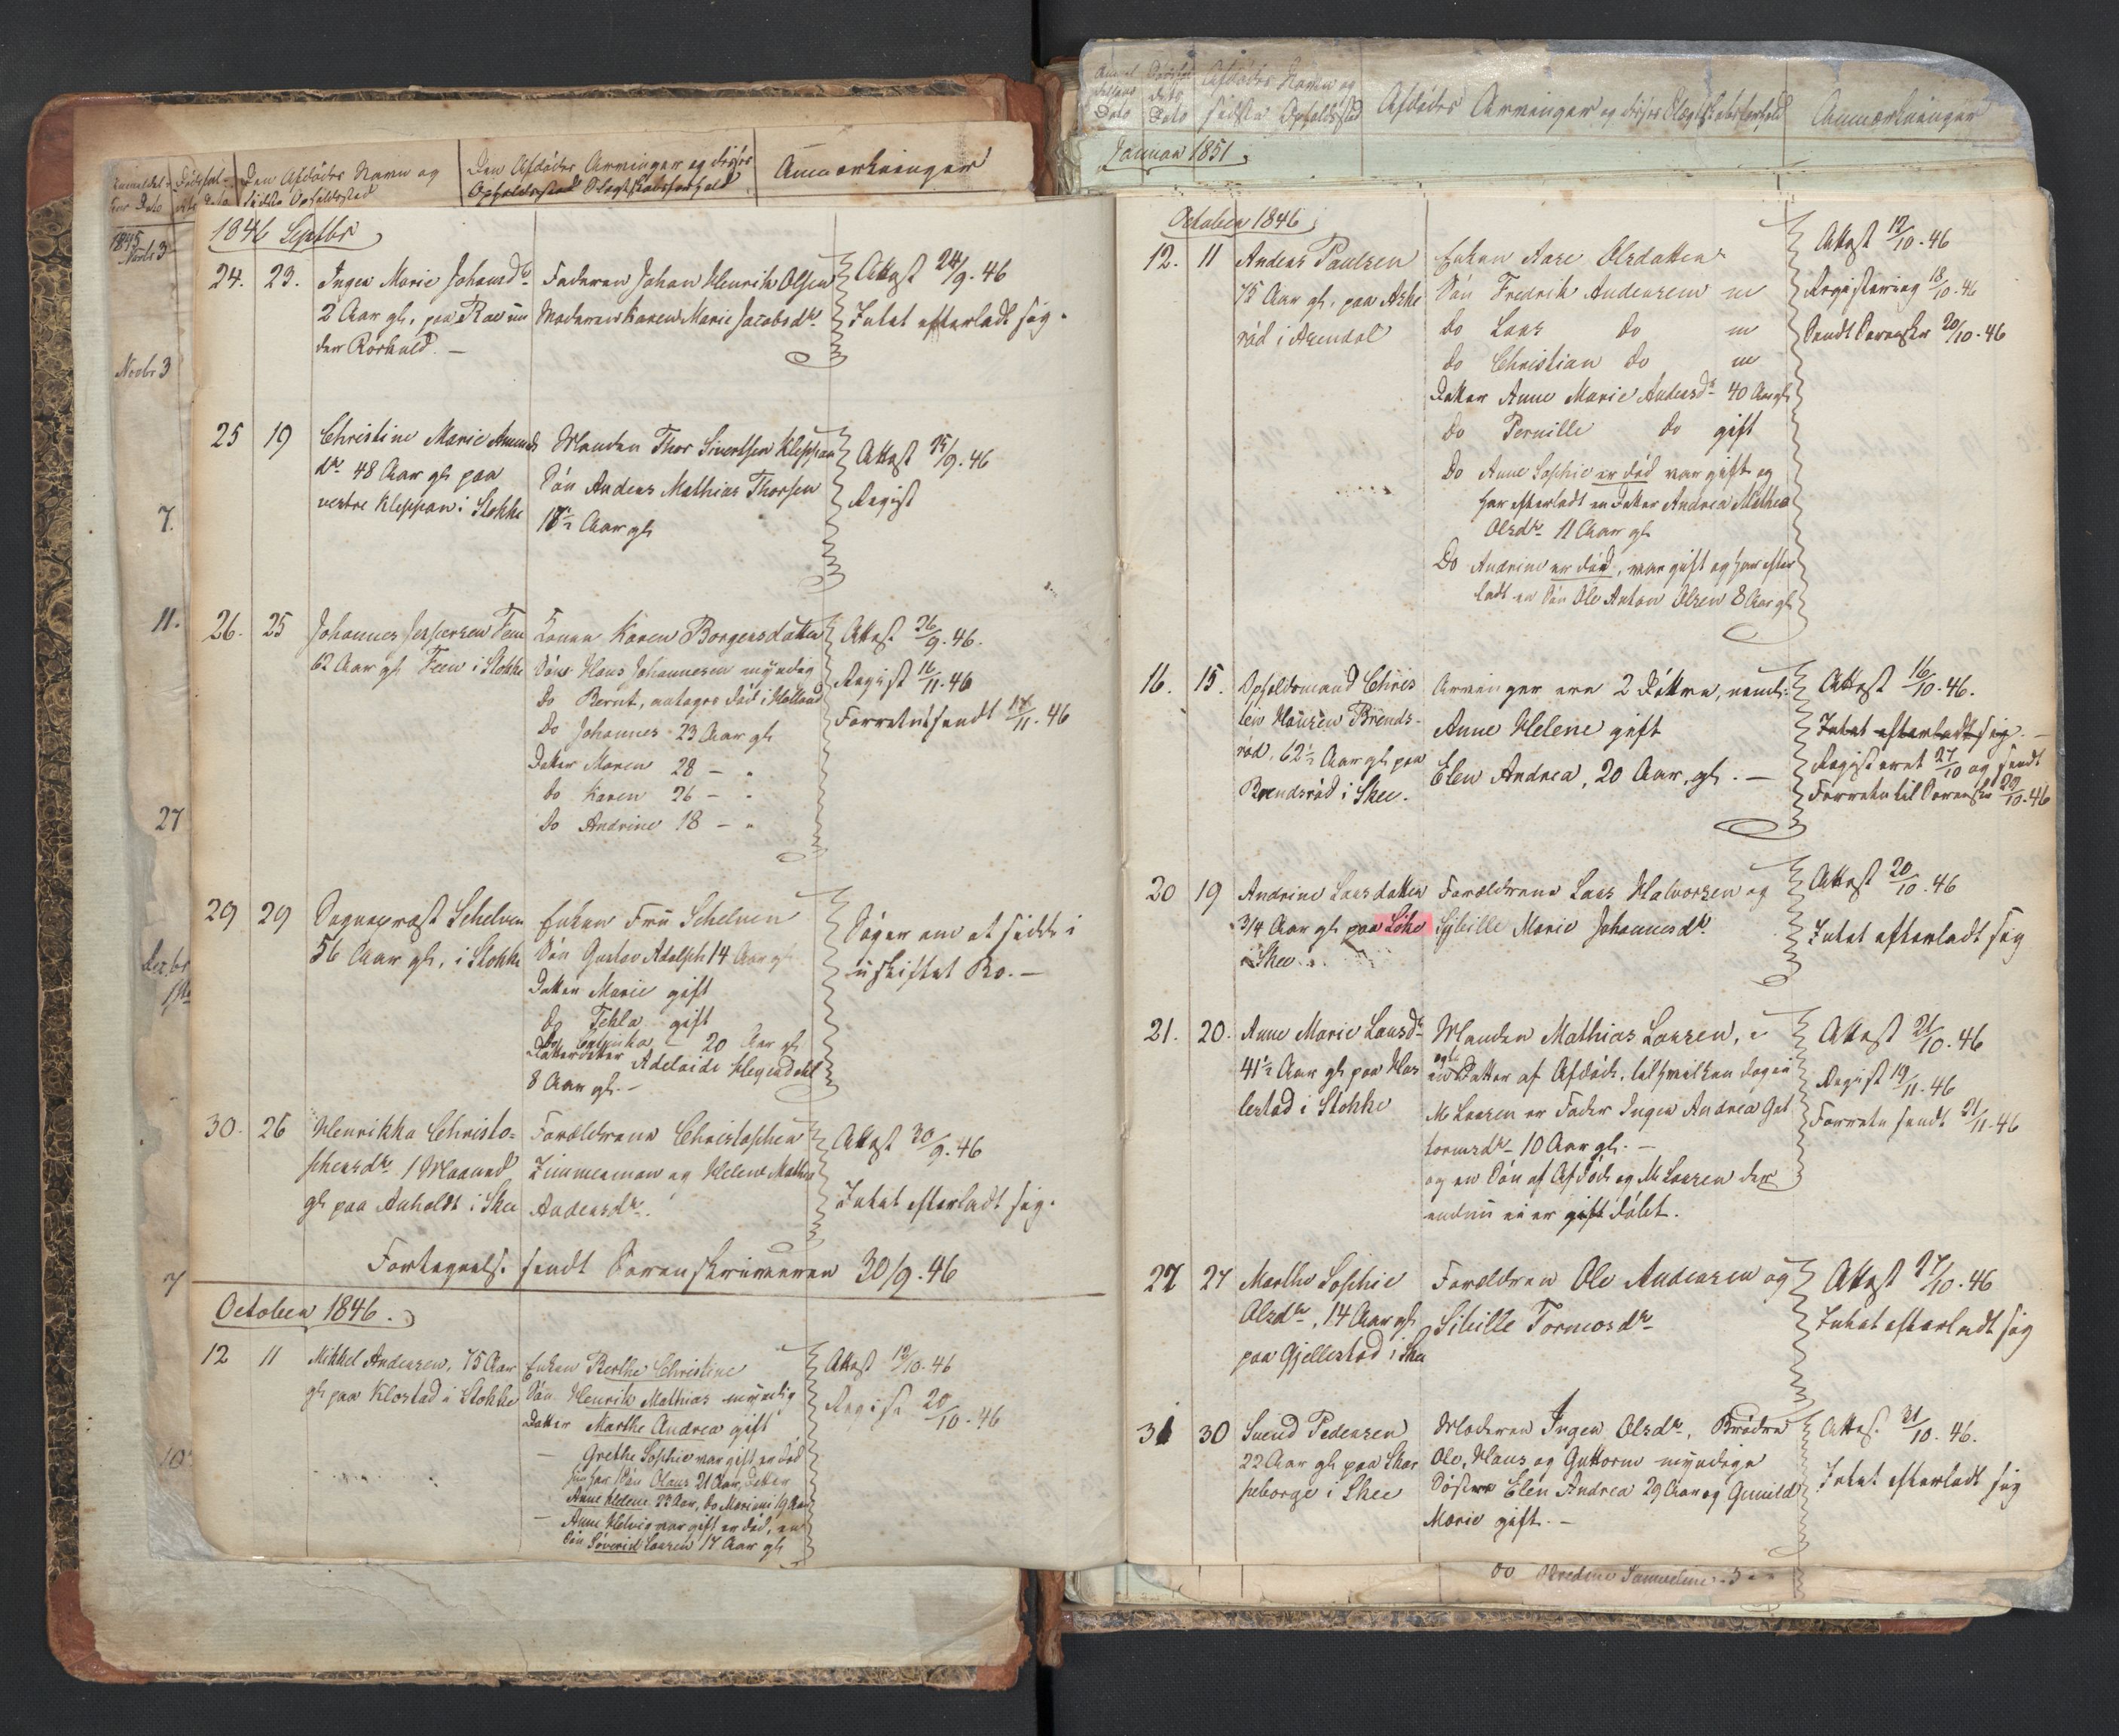 Den Afdødes Navn og
sidste Opholdssted
Den Afdødes Arvinger og disses
Opholdssted Slægtskabsforhold
Anmærkninger
1845
Novbr 3
Novbr 3
7.
11.
27
Decbr
7
10
1846 Septbr
24. 23. Inger Marie Johansdr
2 Aar gl. paa Rae un
der Rørkuld. —
Faderen Johan Henrik Olsen
Moderen Karen Marie Jacobsdr
Attest 24/9. 46
Intet efterladt sig.
25 19 Christine Marie Amunds
dr 48 Aar gl paa
vestre Kleppan i Stokke
Manden Thor Sivertsen Kleppan
Søn Anders Mathias Thorsen
18½ Aar gl
Attest 25/9. 46
Regist
26. 25 Johannes Jespersen Feen
62 Aar gl Feen i Stokke
Konen Karen Borgersdatter
Søn Hans Johannesen myndig
Do Bernt, antages død i Holland
Do Johannes 23 Aar gl
Datter Maren 28 — "
Do Karen 26 — "
Do Andrine 18 — "
Attest 26/9. 46.
Regist 16/11. 46
Forretn: sendt 17/11. 46
29 29 Sognepræst Schelven
56 Aar gl. i Stokke
Enken Fru Schelven
Søn Gustav Adolph 14 Aar gl
Datter Marie gift
Do Tekla gift
Do Cathinka — 20 Aar gl
Datterdatter Adelaide Heyerdahl
8 Aar gl. —
Søger om at sidde i
uskiftet Bo. —
30. 26 Henrikka Christo=
phersdr 1 Maaned
gl paa Anholdt i Skee
Forældrene Christopher
Zimmerman og Helene Mathea
Andersdr.
Attest 30/9. 46
Intet efterladt sig.
Fortegnelse sendt Sorenskriveren 30/9. 46
October 1846.
12 11 Mikkel Andersen, 75 Aar
gl paa Klostad i Stokke
Enken Berthe Christine
Søn Henrik Mathias myndig
Datter Marthe Andrea gift
— Grethe Sophie var gift er død
hun har Søn Olaus 21 Aar, Datter
Anne Helene 23 Aar, Do Mariane 19 Aar
— Anne Helvig var gift er død, en
Søn Severin Larsen 17 Aar gl
Attest 12/10. 46
Regist 20/10. 46
Afdødes Navn og
sidste Opholdssted
Afdødes Arvinger og disses Slægtskabsforhold
Anmærkninger
Januar 1851
October 1846
12. 11 Anders Paulsen
75 Aar gl. paa Aske
rød i Arendal
Enken Aase Olsdatter
Søn Fredrik Andersen m
Do Lars Do m
Do Christian Do m
Datter Anne Marie Andersdr 40 Aar gl
Do Pernille Do gift
Do Anne Sophie er død var gift og
har efterladt en Datter Andrea Mathea
Olsdr 11 Aar gl
Do Andrine er død, var gift og har efter
ladt en Søn Ole Anton Olsen 8 Aar gl
Attest 12/10. 46
Registering 18/10. 46
Sendt Sorenskr 20/10. 46
16. 15. Opholdsmand Chris
ten Hansen Brends-
rød, 62½ Aar gl paa
Brendsrød i Skee.
Arvinger ere 2 Døttre, neml:
Anne Helene gift
Elen Andrea, 20 Aar, gl. —
Attest 16/10. 46.
Intet efterladt sig. —
Registeret 27/10 og sendt
Forretn til Sorenskr 29/10. 46
20 19 Andrine Larsdatter
3/4 Aar gl paa Løke
i Skee.
Forældrene Lars Halvorsen og
Sybille Marie Johannesdr
Attest 20/10. 46
Intet efterladt sig
21. 20. Anne Marie Larsdr
41½ Aar gl paa Har
lestad i Stokke
Manden Mathias Larsen,
en Datter af Afdøde, til hvilken dog ei
M Larsen er Fader Inger Andrea Gut
tormsdr 10 Aar gl. —
og en Søn af Afdøde og M Larsen der
endnu ei er gift døbt.
Attest 21/10. 46
Regist 19/11. 46
Forretn sendt 21/11. 46
27 27 Marthe Sophie
Olsdr, 14 Aar gl
paa Gjellestad i Skee
Forældren Ole Andersen og
Sibille Tormosdr
Attest 27/10. 46
Intet efterladt sig
31 30 Svend Pedersen
22 Aar gl paa Skar
peborge i Skee
Moderen Inger Olsdr, Brødre
Ole, Hans og Guttorm myndige
Søstre Elen Andrea 29 Aar og Gunild
Marie gift. —
Attest 31/10. 46.
Intet efterladt sig